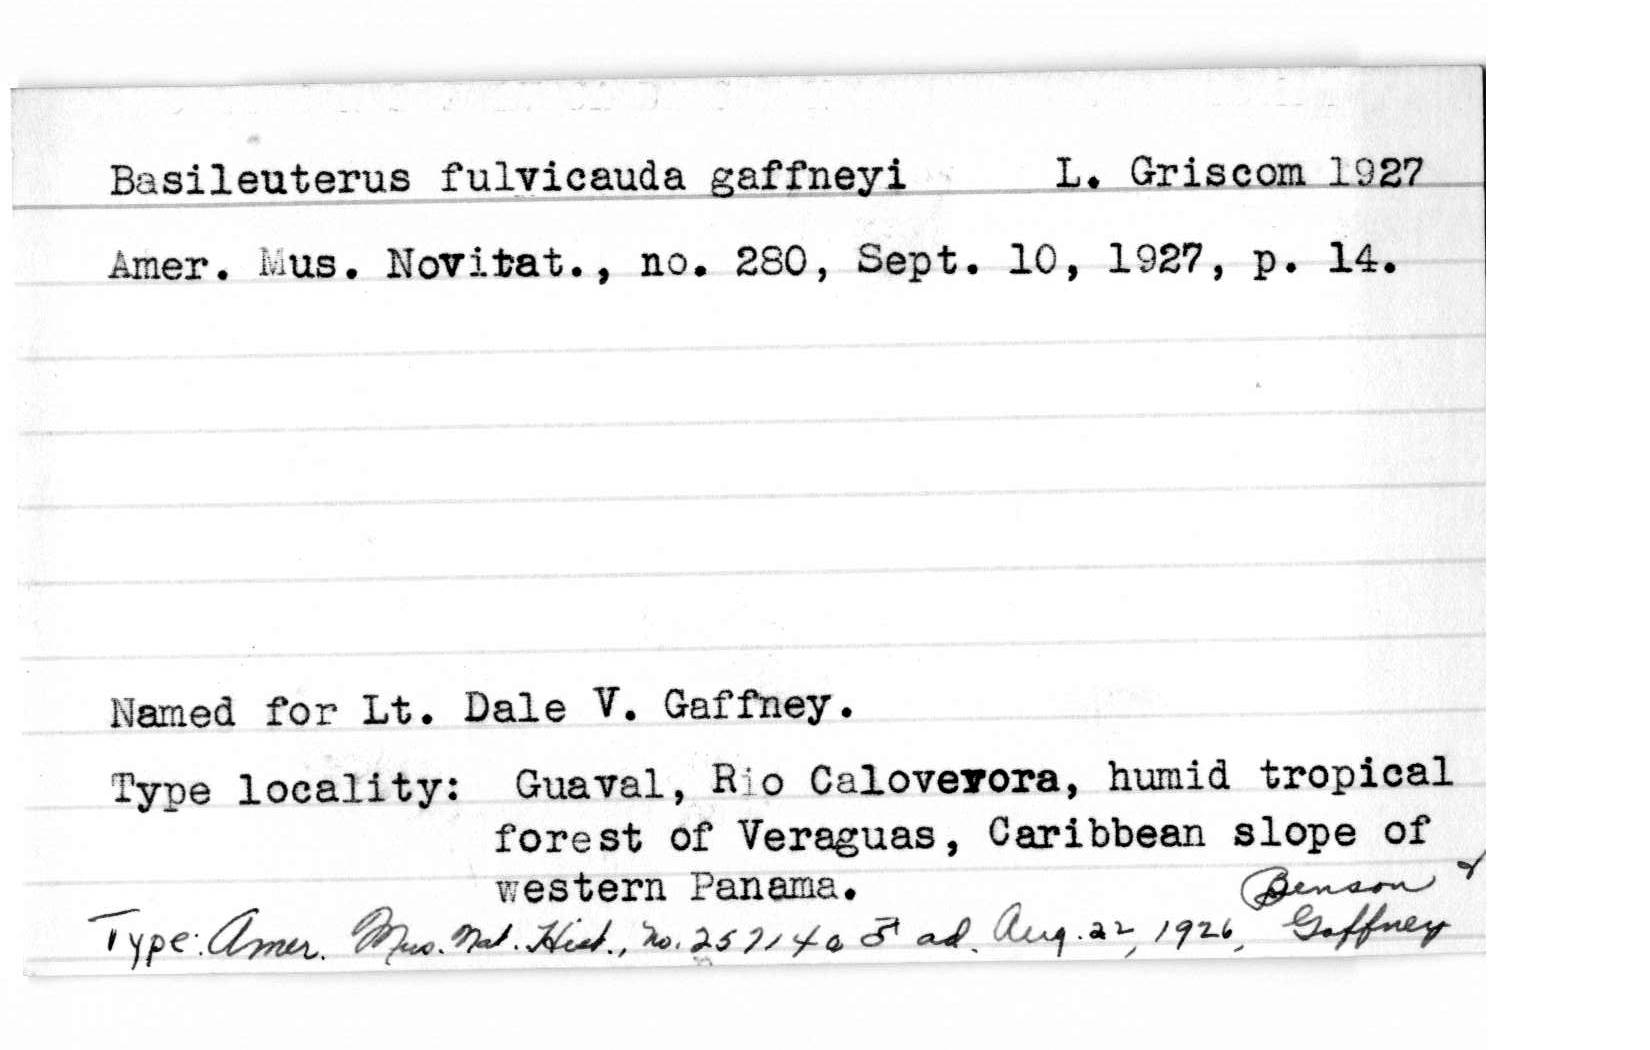 Basileuterus fulvicauda gaffneyi L. Griscom 1927
Amer. Mus. Novitat., no. 280, Sept. 10, 1927, p. 14.
Named for Lt. Dale V. Gaffney.
Type locality: Guaval, Rio Caloverora, humid tropical
forest of Veraguas, Caribbean slope of
western Panama.
Benson &
Type: Amer. Mus. Nat. Hist., No. 257140 ♂ ad. Aug. 22, 1926, Gaffney